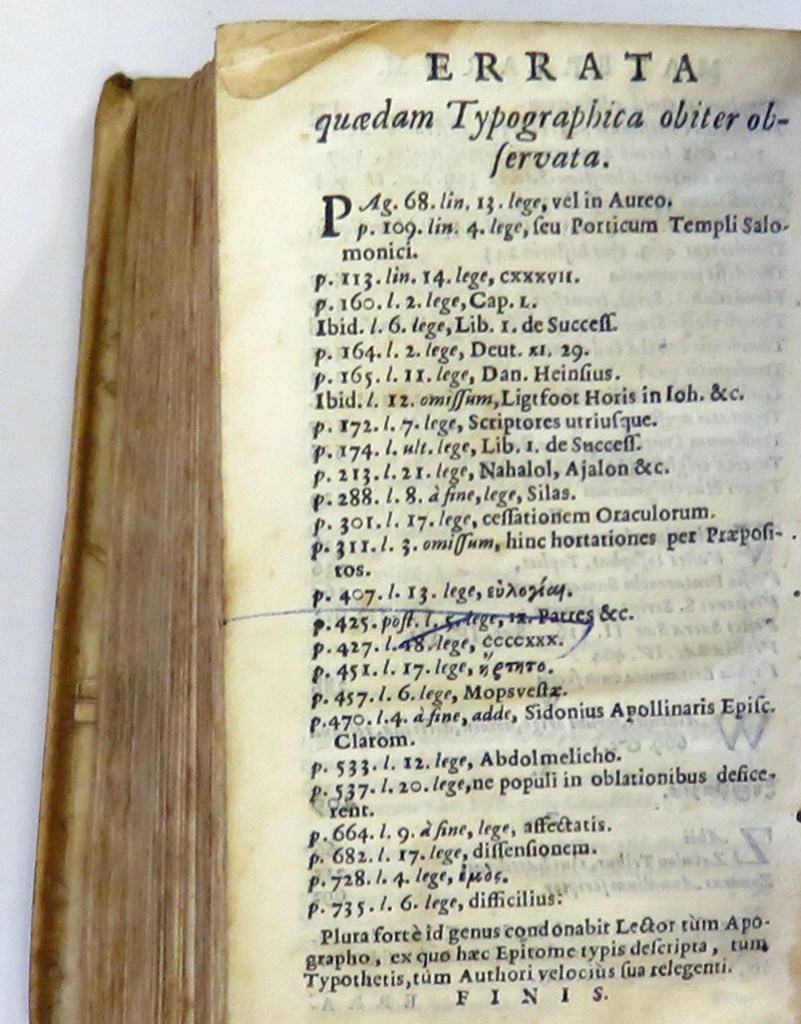 ERRATA
quædam Typographica obiter ob-
servata.
PAg. 68. lin. 13. lege, vel in Aureo.
p. 109. lin. 4. lege, seu Porticum Templi Salo-
monici.
p. 113. lin. 14. lege, cxxxvii.
p. 160. l. 2. lege, Cap. L.
Ibid. l. 6. lege, Lib. 1. de Success.
p. 164. l. 2. lege, Deut. xi. 29.
p. 165. l. 11. lege, Dan. Heinsius.
Ibid. l. 12. omissum, Ligtfoot Horis in Ioh. &c.
p. 172. l. 7. lege, Scriptores utriusque.
p. 174. l. ult. lege, Lib. 1. de Success.
p. 213. l. 21. lege, Nahalol, Ajalon &c.
p. 288. l. 8. à fine, lege, Silas.
p. 301. l. 17. lege, cessationem Oraculorum.
p. 311. l. 3. omissum, hinc hortationes per Præposi-
tos.
p. 407. l. 13. lege, εὐλογίαι.
p. 425. post. l. 5. lege, ix. Patres &c.
p. 427. l. 18. lege, ccccxxx.
p. 451. l. 17. lege, ἤρτητο.
p. 457. l. 6. lege, Mopsvestæ.
p. 470. l. 4. à fine, adde, Sidonius Apollinaris Episc.
Clarom.
p. 533. l. 12. lege, Abdolmelicho.
p. 537. l. 20. lege, ne populi in oblationibus defice-
rent.
p. 664. l. 9. à fine, lege, affectatis.
p. 682. l. 17. lege, dissensionem.
p. 728. l. 4. lege, ἐμὸς.
p. 735. l. 6. lege, difficilius:
Plura fortè id genus condonabit Lector tùm Apo-
grapho, ex quo hæc Epitome typis descripta, tum
Typothetis, tùm Authori velociùs sua relegenti.
FINIS.